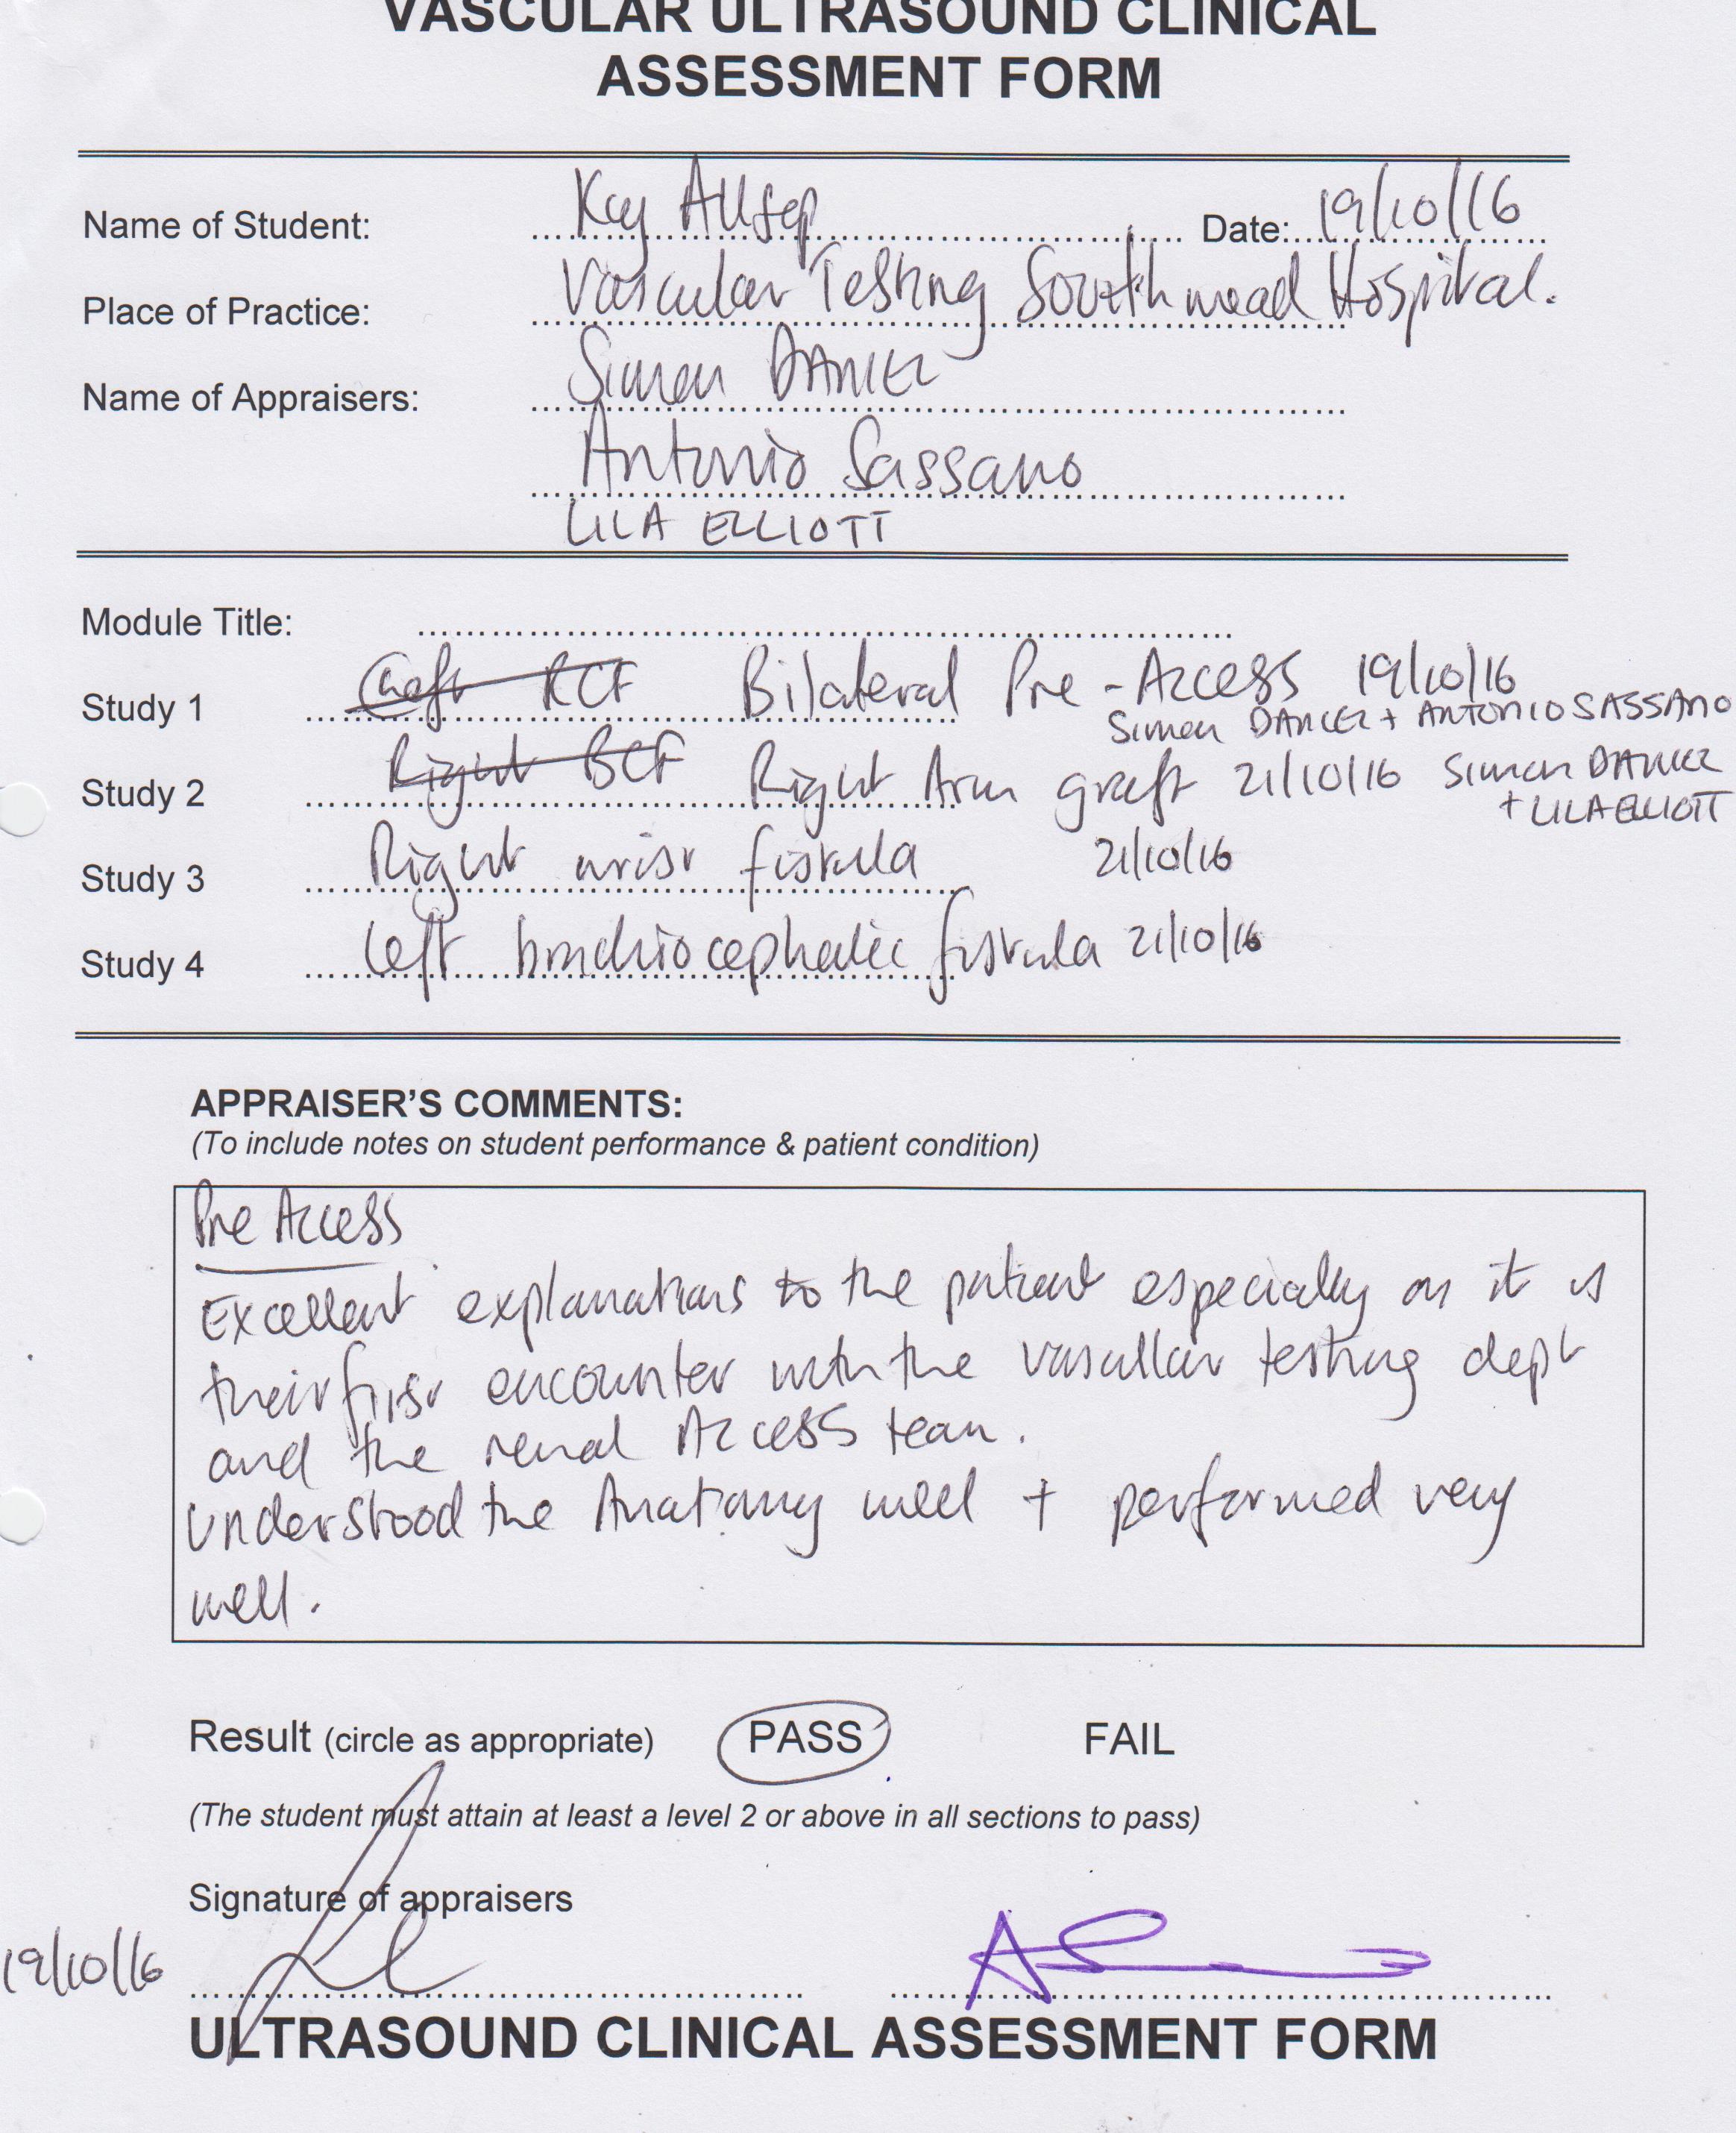 VASCULAR ULTRASOUND CLINICAL
ASSESSMENT FORM
Name of Student: Kay Allsep Date: 19/10/16
Place of Practice: Vascular Testing Southmead Hospital.
Name of Appraisers: Simon DANCER
Antonio Sassano
LILA ELLIOTT
Module Title:
Study 1 RCF Bilateral Pre-Access 19/10/16
Simon DANCER + ANTONIO SASSANO
Study 2 Right BCF Right Arm graft 21/10/16 Simon DANCER
+ LILA ELLIOTT
Study 3 Right wrist fistula 21/10/16
Study 4 Left brachiocephalic fistula 21/10/16
APPRAISER'S COMMENTS:
(To include notes on student performance & patient condition)
Pre Access
Excellent explanations to the patient especially as it is
their first encounter with the vascullar testing dept
and the renal Access team.
Understood the Anatomy well + performed very
well.
Result (circle as appropriate) PASS FAIL
(The student must attain at least a level 2 or above in all sections to pass)
Signature of appraisers
19/10/16
ULTRASOUND CLINICAL ASSESSMENT FORM